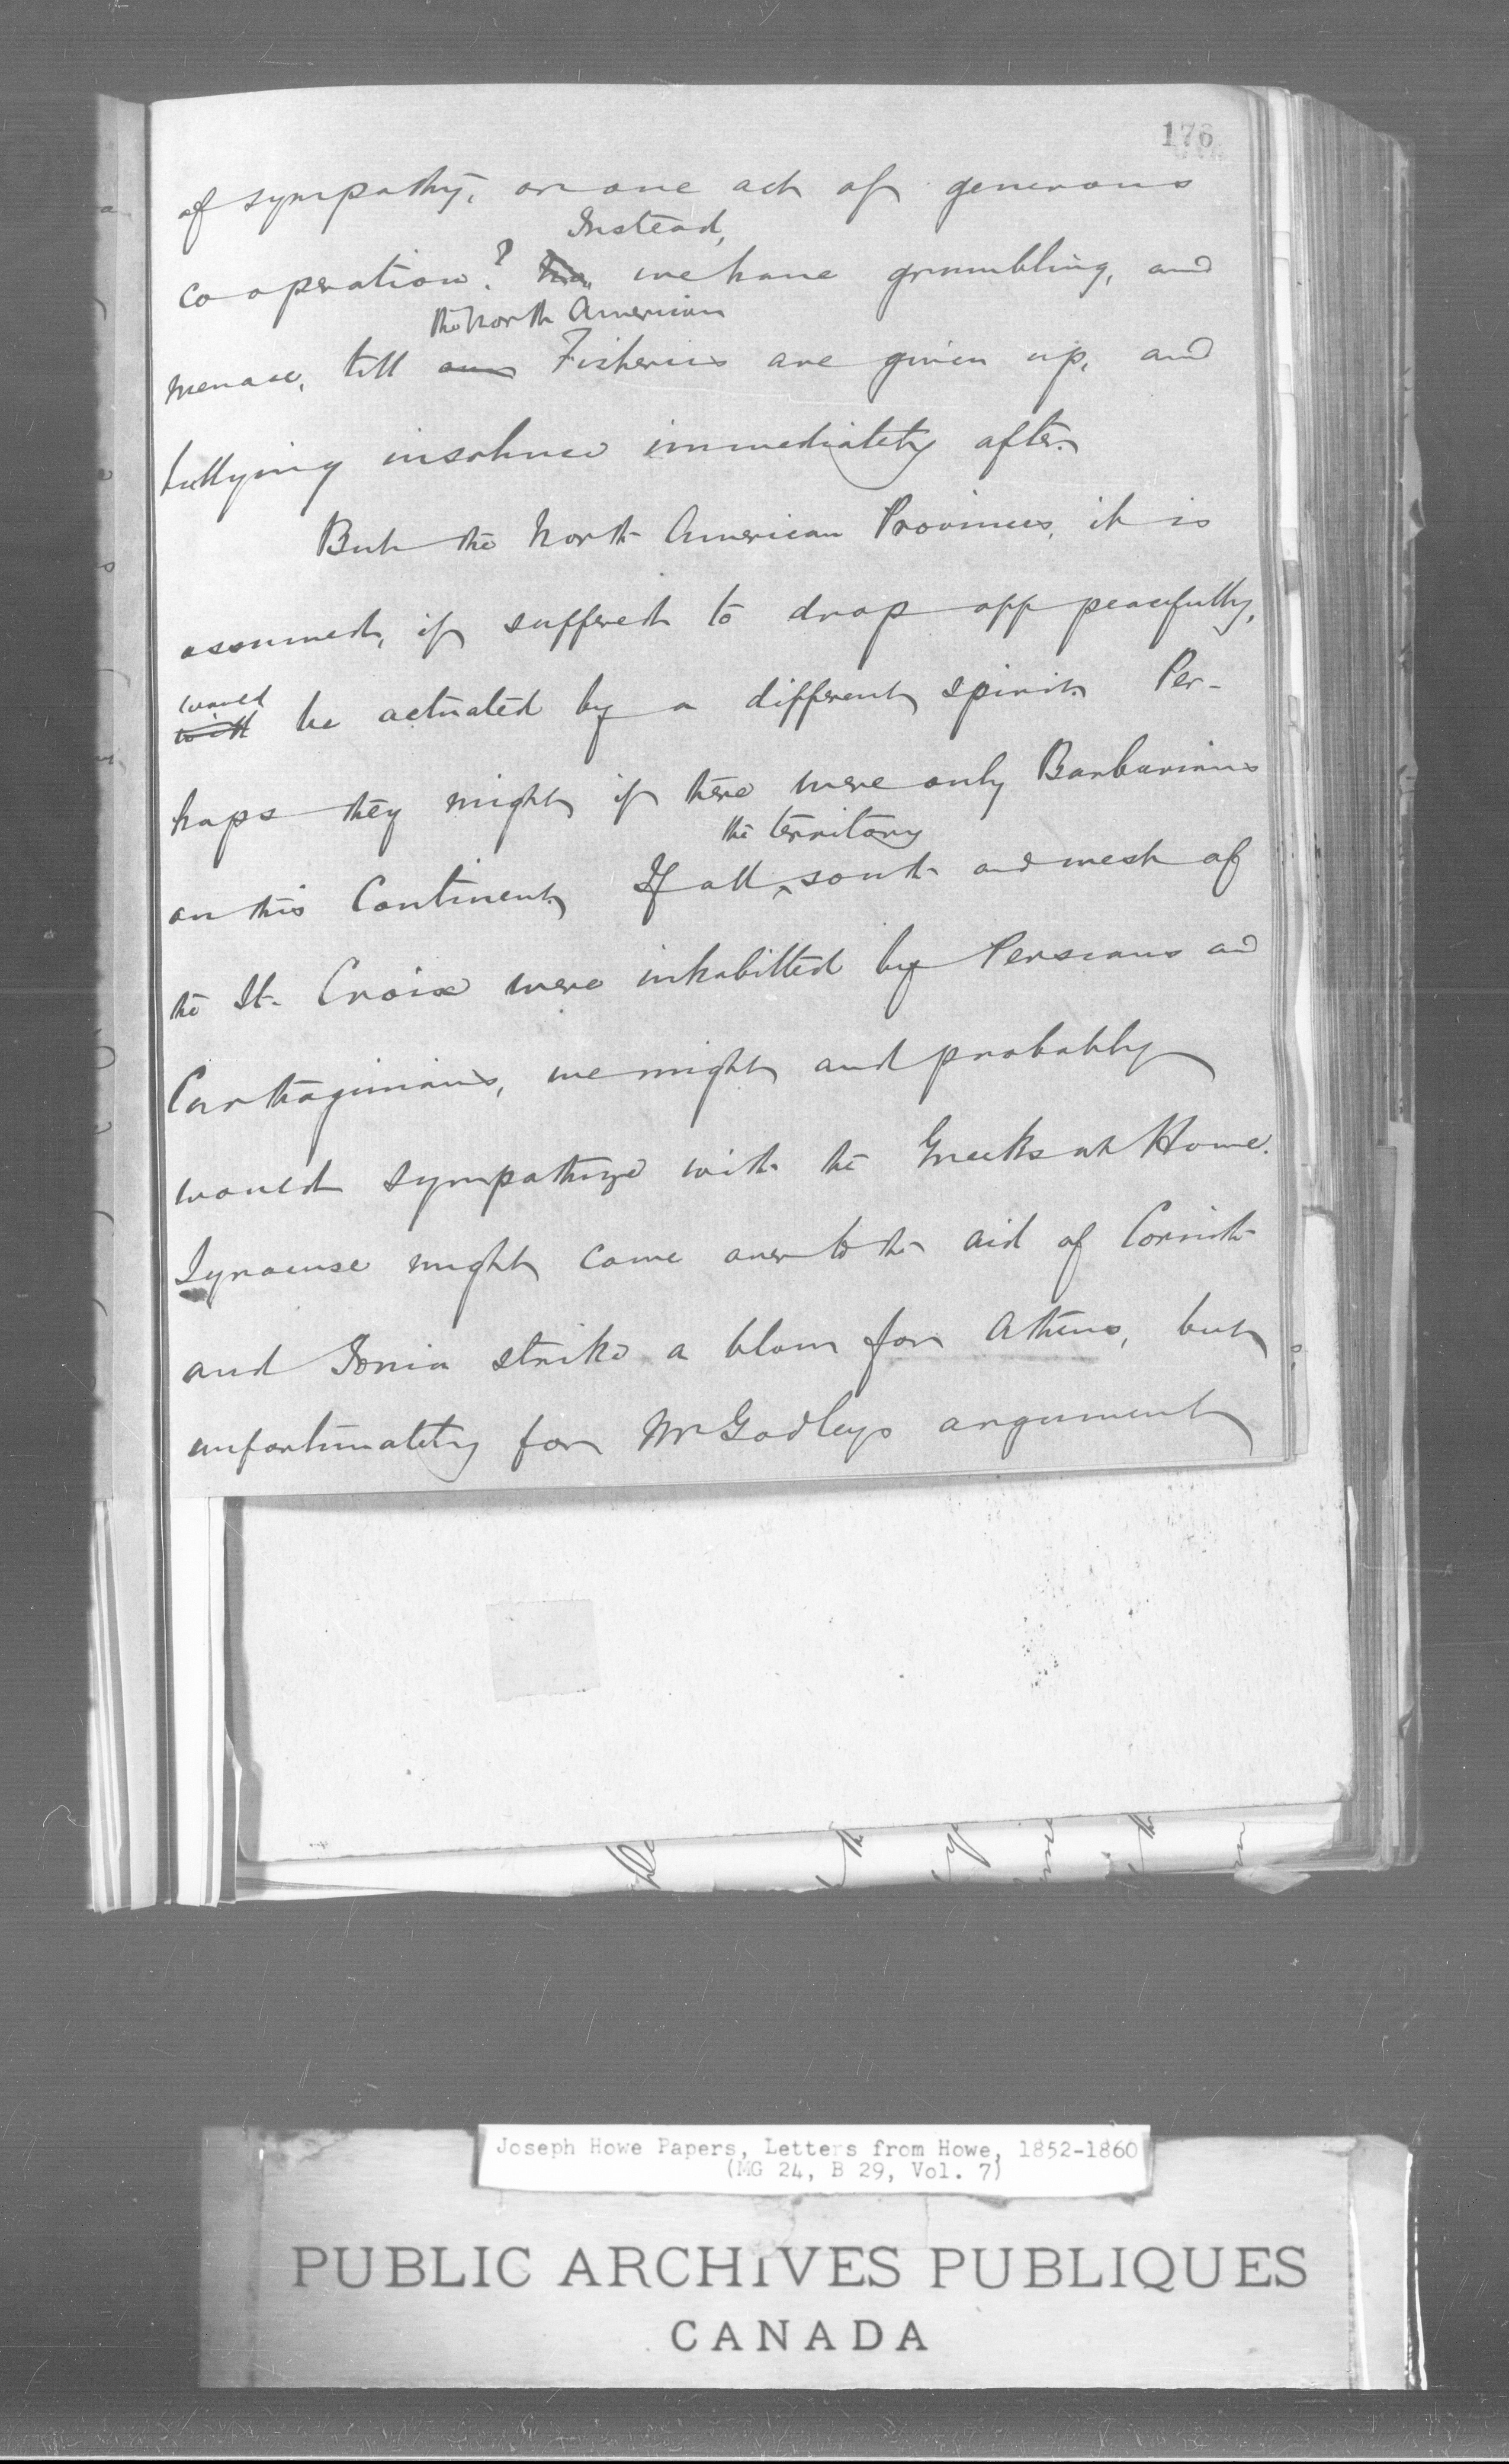 176
of sympathy, or one act of generous
Instead,
cooperation? No, we have grumbling, and
the North American
menace, till our Fisheries are given up, and
bullying insolence immediately after.
But the North American Provinces, it is
assumed, if suffered to drop off peacefully,
would
will be actuated by a different spirit. Per-
haps they might if there were only Barbarians
the territory
on this Continent. If all ^ south and west of
the St. Croix were inhabitted by Persians and
Carthaginians, we might and probably
would sympathize with the Greeks at Home.
Syracuse might come over to the aid of Corinth
and Ionia strike a blow for Athens, but
unfortunately for Mr Godleys argument
Joseph Howe Papers, Letters from Howe, 1852-1860
(MG 24, B 29, Vol. 7)
PUBLIC ARCHIVES PUBLIQUES
CANADA